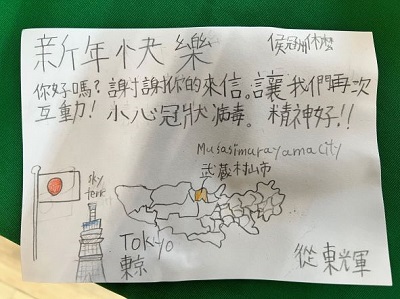 新年快樂
你好嗎？謝謝你的來信。讓我們再次
互動！小心冠狀病毒。精神好！！
Musasimurayama City
武蔵村山市
sky
tree
Tokyo
東京
從東光軍